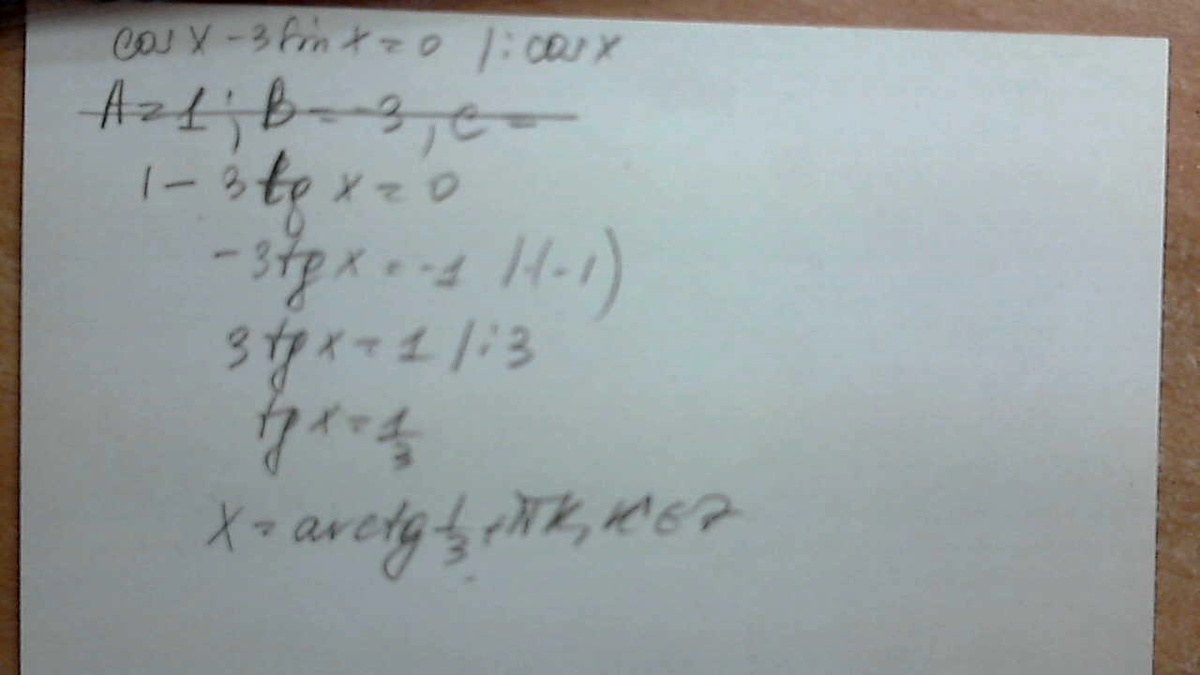 cos x - 3 sin x = 0 / : cos x
A = 1 ; B = -3 , C =
1 - 3 tg x = 0
-3 tg x = -1 / · (-1)
3 tg x = 1 / : 3
tg x = 1/3
x = arctg 1/3 + πk, k ∈ Z